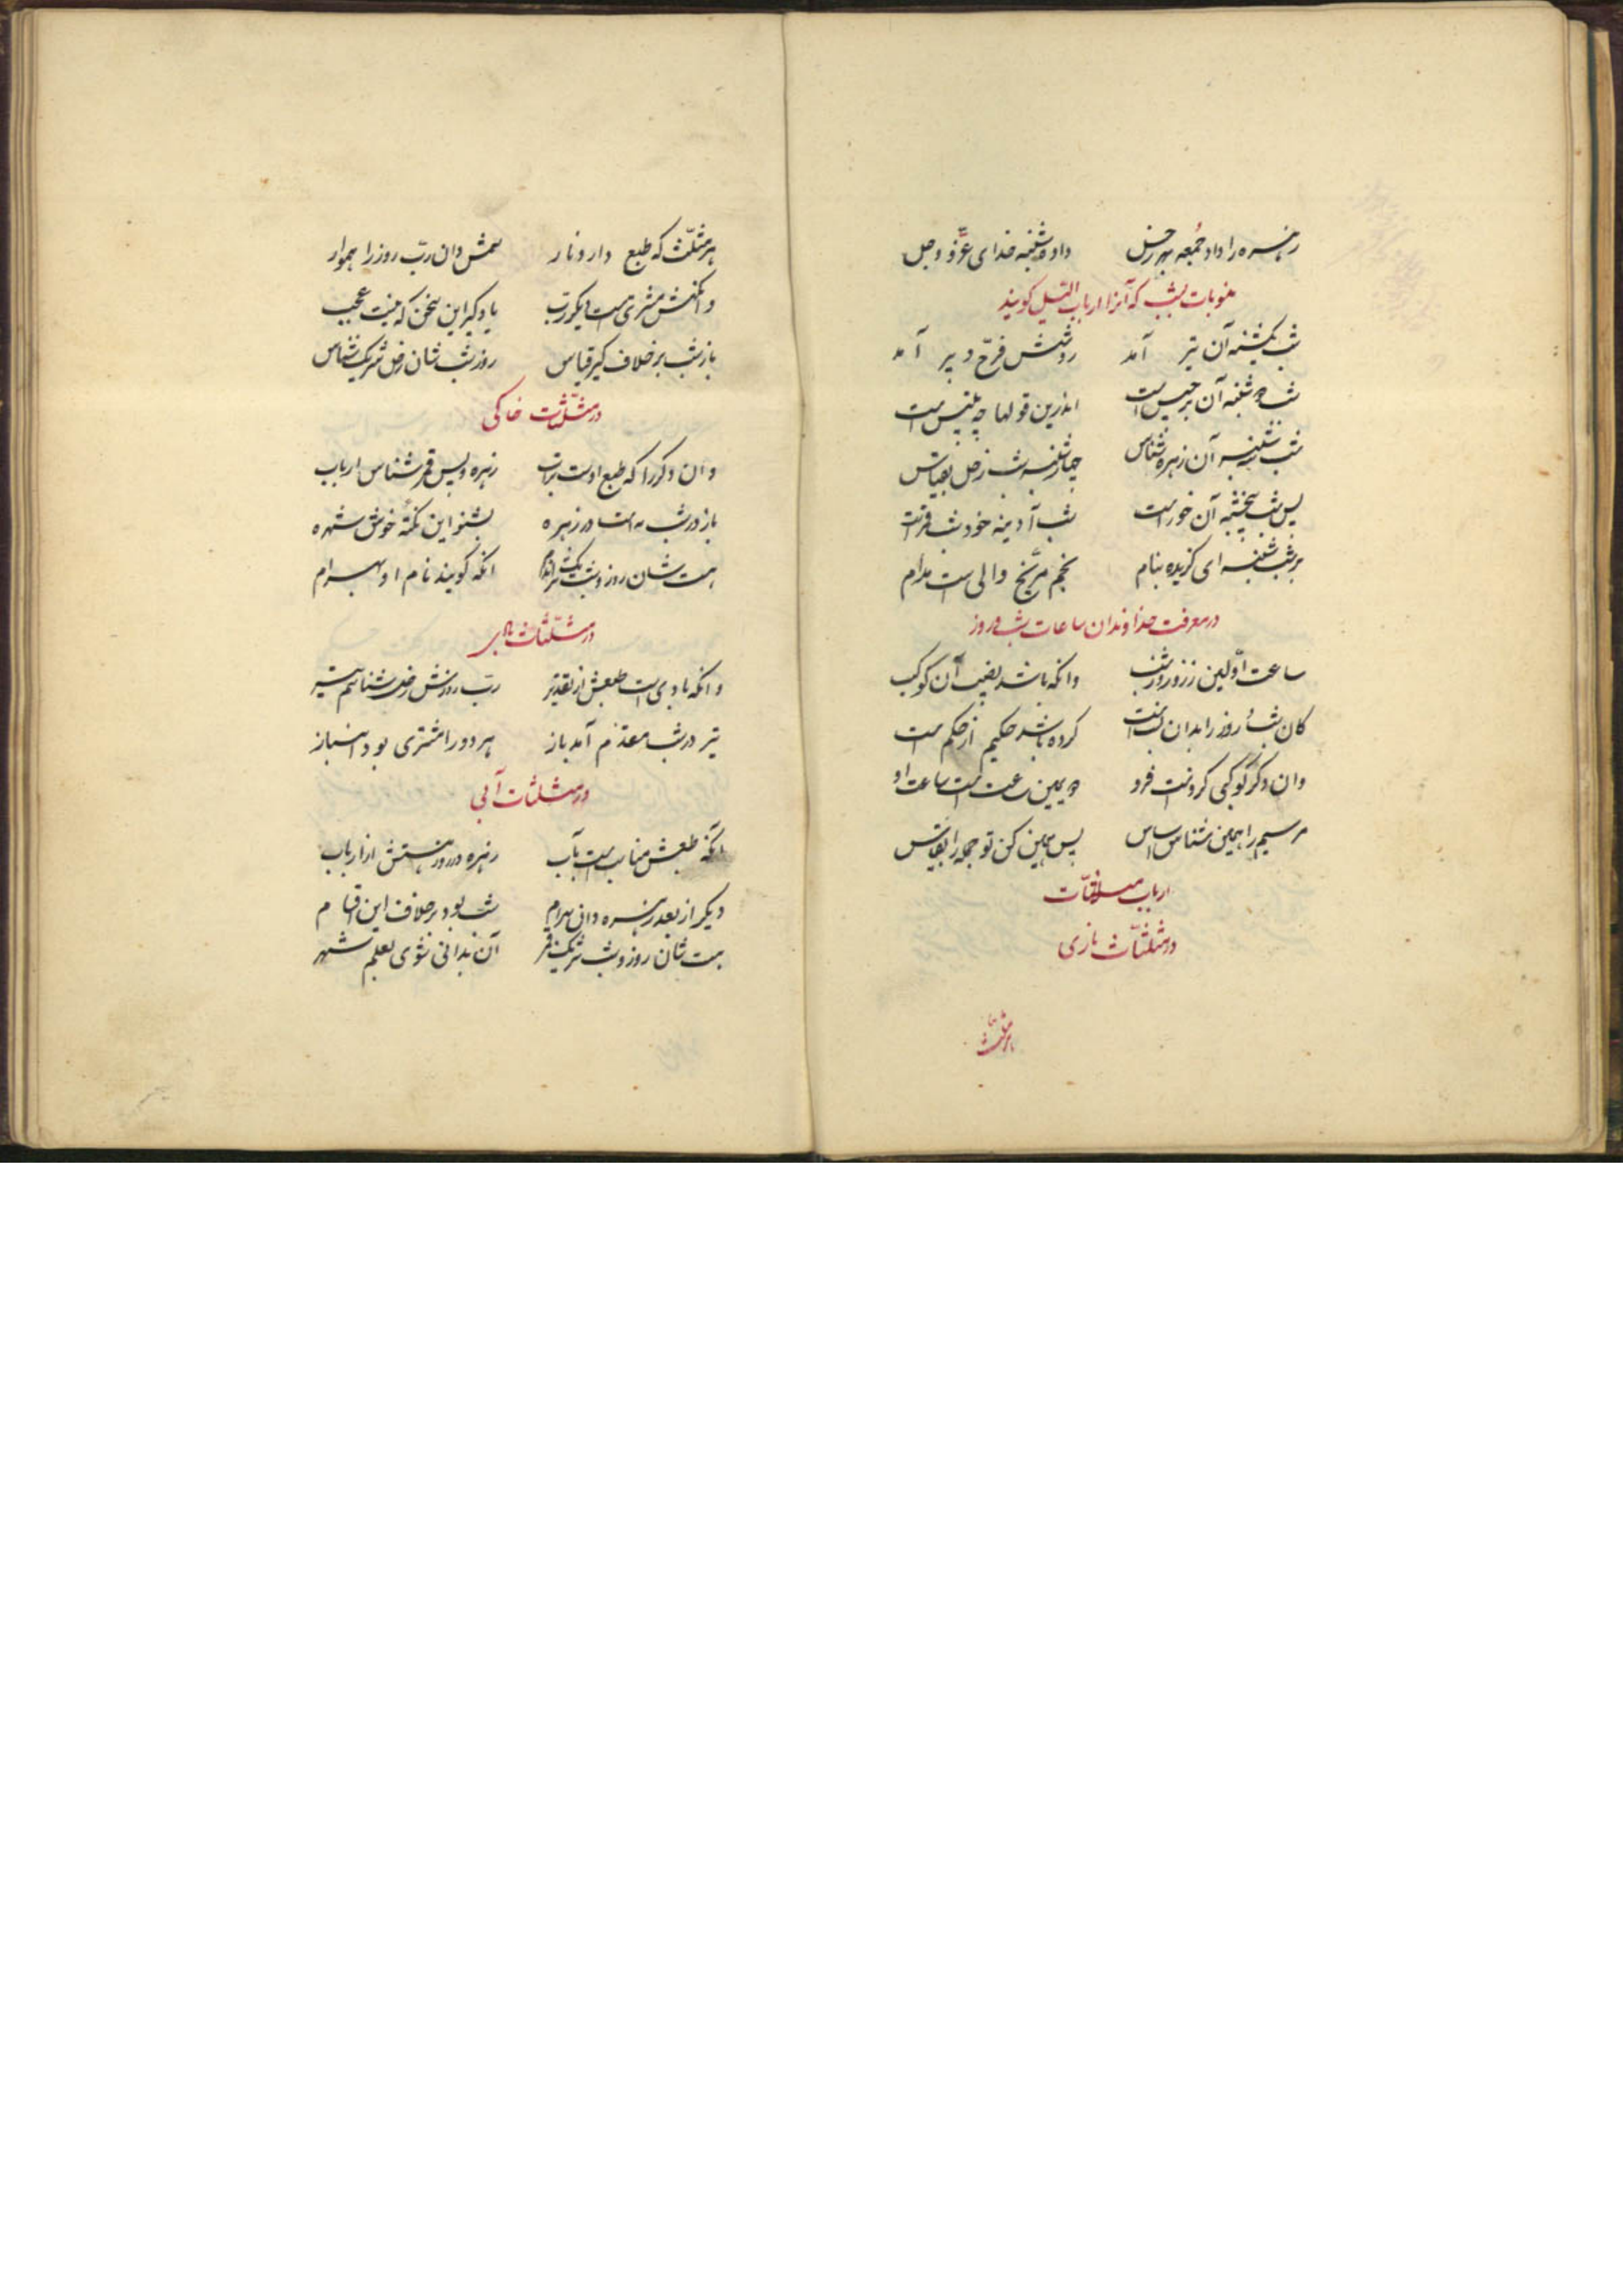 زهره را داد جمعه بهر زحل داد شنبه خدای عزّ و جل
منسوبات بشب که آنرا ارباب اللیل گویند
شب یکشنبه آن تیر آمد روشنش فرخ دبیر آمد
شب دوشنبه آن برجیس است اندرین قولها چه تلبیس است
شب سه شنبه آن زهره شناس چهارشنبه شب زحل بقیاس
پس شب پنجشنبه آن خور است شب آدینه خود شب قمر است
بر شب شنبه ای گزیده بنام نجم مرّیخ والی است مدام
در معرفت خداوندان ساعات شب و روز
ساعت اوّلین ز روز و ز شب دانکه باشد نصیب آن کوکب
کان شب و روز را بدان نسبت کرده باشد حکیم از حکمت
وان دگر کوکبی که فرود دویمین ساعت است ساعت او
مر سیم را همین شناس اساس پس همین کن تو جمله را بقیاس
ارباب مثلثات
در مثلثات ناری
هر مثلث
هر مثلّث که طبع دارد نار شمس دان ربّ روز را هموار
وانگهش مشتری است دیگر ربّ یاد گیر این سخن که نیست عجب
باز شب بر خلاف گیر قیاس روز و شب شان زحل شریک شناس
در مثلّثات خاکی
وان دگر را که طبع اوست تراب زهره و پس قمر شناس ارباب
باز در شب مه است و زهره بشنو این نکتهٔ خوش شهره
هست شان روز و شب شریک انکه گویند نام او بهرام
در مثلّثات بادی
وانکه بادی است طبعش از تقدیر ربّ روزش زحل شناسم تیر
تیر در شب مقدّم آمد باز هر دو را مشتری بود انباز
در مثلثات آبی
آنکه طبعش مناسب است بآب زهره در روز هستش از ارباب
دیگر از بعد زهره دان بهرام شب بود بر خلاف این اقسام
هست شان روز و شب شریک قمر آن بدانی شوی بعلم شهر